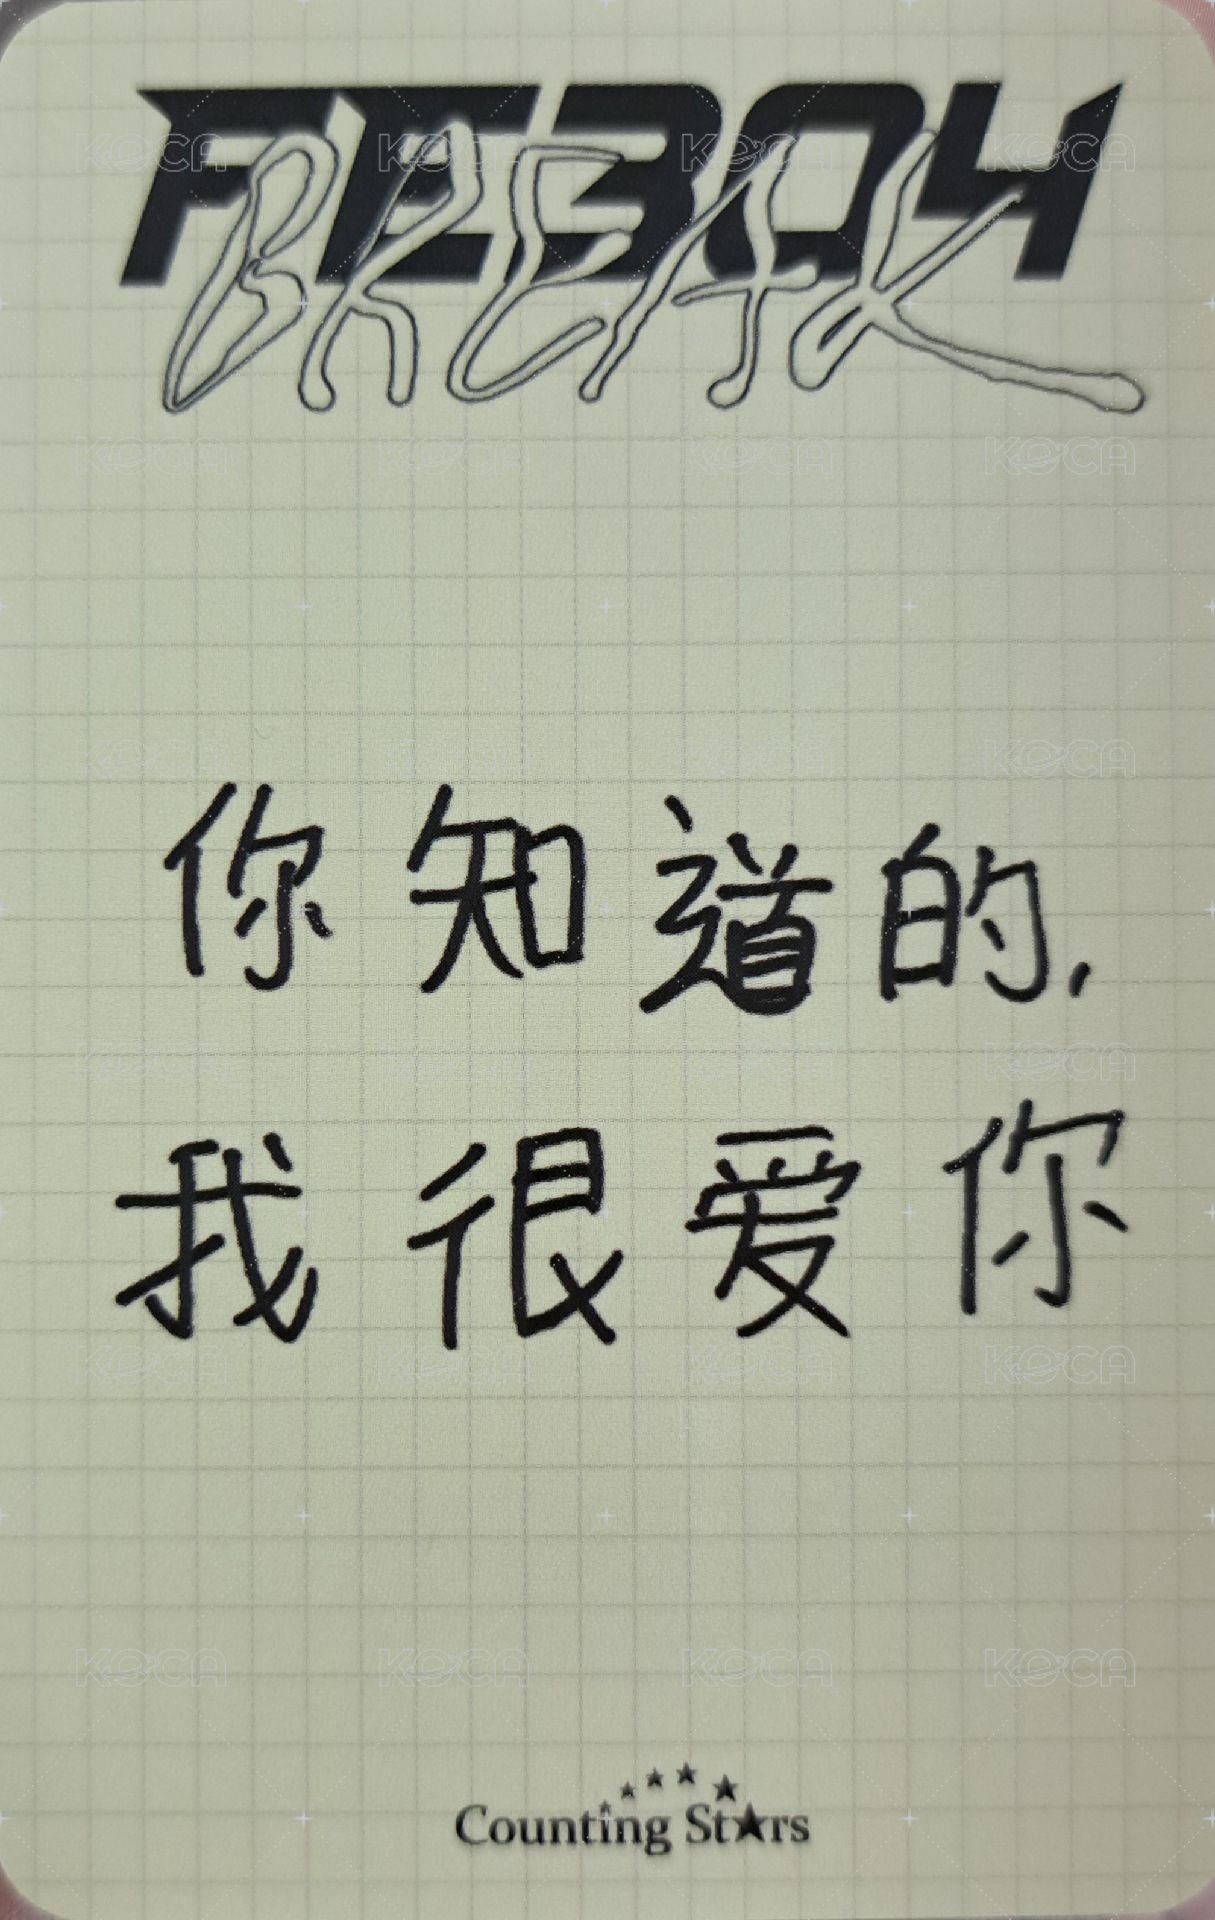 FE304
BREAK
你知道的,
我很爱你
Counting Stars
KOCA